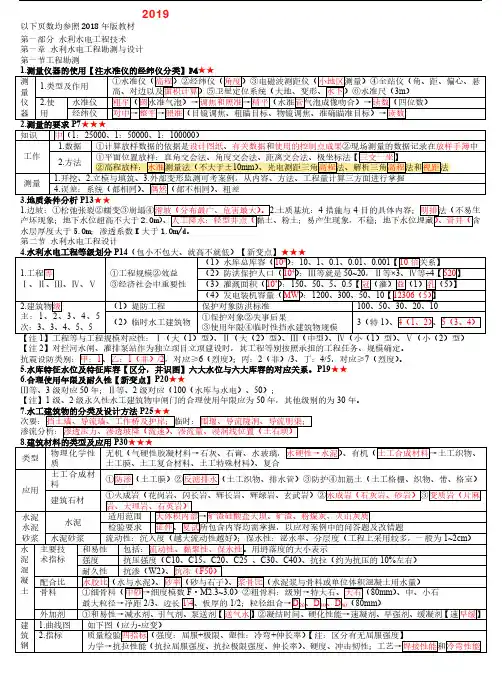 2019
以下页数均参照 2018 年版教材
第一部分 水利水电工程技术
第一章 水利水电工程勘测与设计
第一节工程勘测
1.测量仪器的使用【注水准仪的经纬仪分类】P4★★
测量仪器
1.类型及作用
①水准仪（高程）②经纬仪（角度）③电磁波测距仪（小地区测量）④全站仪（角、距、偏心、悬高、对边以及面积计算）⑤卫星定位系统（大地、变形、水下）⑥水准尺（3m）
2.使用
水准仪
粗平（圆水准气泡）→调焦和照准→精平（水准管气泡成像吻合）→读数（四位数）
经纬仪
对中→整平→照准（目镜调焦、粗瞄目标、物镜调焦、准确瞄准目标）→读数
2.测量的要求 P7★★★
知识
中（1：25000、1：50000、1：100000）
工作
1.数据
①计算放样数据的依据是设计图纸、有关数据和使用的控制点成果②现场测量的数据记录在放样手簿中
2.方法
①平面位置放样：直角交会法、角度交会法、距离交会法、极坐标法【三交一坐】
②高程放样：水准测量法（不大于±10mm）、光电测距三角高程法、解析三角高程法和视距法
测量
1.开挖、2.立模与填筑、3.外部变形监测可考案例，从内容、方法、工程量计算三方面进行掌握
4.误差：系统（都相同）、偶然（都不相同）、粗差
3.地质条件分析 P13★★
1.边坡：①松弛张裂②蠕变③崩塌④滑坡（分布最广、危害最大）。2.土质基坑：4 措施与 4 目的具体内容；明排法（不易生产坏现象；地下水位超高不大于 2.0m）、人工降水：轻型井点（黏土、粉土；易产生现象，不稳；地下水位埋藏）、管井（含水层厚度大于 5.0m；渗透系数 K 大于 1.0m/d。
第二节 水利水电工程设计
4.水利水电工程等级划分 P14（包小不包大、就高不就低）【新变点】★★★
1.工程等
Ⅰ、Ⅱ、Ⅲ、Ⅳ、Ⅴ
①工程规模②效益
③经济社会中重要性
（1）水库总库容（10⁸）：10、1、0.1、0.01、0.001【10 倍关系】
（2）防洪保护人口（10⁴）：Ⅲ等就是 50~20，Ⅱ等×3、Ⅳ等÷4【520】
（3）灌溉面积（10⁴）：150、50、5、0.5【冠（灌）益（1）五（5）】
（4）发电装机容量（MW）：1200、300、50、10【12306（5）】
2.建筑物级
主：1、2、3、4、5
次：3、3、4、5、5
（1）堤防工程
保护对象防洪标准
100、50、30、20、10
（2）临时水工建筑物
①保护对象②失事后果
③使用年限④临时性挡水建筑物规模
3（特 1）、4（1、2）、5（3、4）
【注 1】工程等与工程规模对应性：Ⅰ（大（1）型）、Ⅱ（大（2）型）、Ⅲ（中型）、Ⅳ（小（1）型）、Ⅴ（小（2）型）
【注 2】对拦河水闸、灌排泵站作为独立项目立项建设时，其工程等别按照承担的工程任务、规模确定。
抗震设防类别：甲：1、乙：1（非）/2，对应≥6（烈度）；丙：2（非）/3、丁：4/5，对应≥7（烈度）。
5.水库特征水位及特征库容【区分，并识图】六大水位与六大库容的对应关系。P19★★
6.合理使用年限及耐久性【新变点】P20★★
Ⅲ等、3 级对应 50 年；Ⅱ等、2 级对应（100（水库与水电）、50）；
【注】1 级、2 级永久性水工建筑物中闸门的合理使用年限应为 50 年，其他级别的为 30 年。
7.水工建筑物的分类及设计方法 P25★★
次要：挡土墙、导流墙、工作桥及护岸；临时：围堰、导流隧洞、导流明渠；
渗流分析：渗透压力、渗透坡降（流速）、渗流量、浸润线位置（土石坝）
8.建筑材料的类型及应用 P30★★★
类型
物理化学性质
无机（气硬性胶凝材料→石灰、石膏、水玻璃，水硬性→水泥）、有机（土工合成材料→土工织物、土工膜、土工复合材料、土工特殊材料）、复合
应用
土工合成材料
①防渗（土工膜）②反滤排水（土工织物、排水管）③防护④加筋土（土工格栅、织物、带、格室）
建筑石材
①火成岩（花岗岩、闪长岩、辉长岩、辉绿岩、玄武岩）②水成岩（石灰岩、砂岩）③变质岩（片麻岩、大理岩、石英岩）
水泥水泥砂浆
水泥
适用范围
大体积内部→矿渣硅酸盐大坝、矿渣、粉煤灰、火山灰质
检验要求
证件、复试所包含内容均需掌握，以应对案例中的问答题及改错题
水泥砂浆
流动性：沉入度（越大流动性越好）；保水性：泌水率、分层度（工程上采用较多，一般为 1~2cm）
水泥混凝土
主要技术指标
和易性
包括：流动性、黏聚性、保水性。用坍落度的大小表示
强度
抗压强度（C10、C15、C20、C25 、C30、C40）、抗拉（约为抗压的 10%左右）
耐久性
抗渗（W2）、抗冻（F50）
配合比
水胶比（水与水泥）、砂率（砂与石子）、浆骨比（水泥浆与骨料或单位体积混凝土用水量）
骨料
①细骨料（中砂→细度模数 F·M2.3~3.0）②粗骨料：级别→特大石、大石（80mm）、中、小石
最大粒径→净距 2/3、边长 1/4、板厚的 1/2；粒径组合→D₂₀、D₄₀、D₈₀（80mm）
外加剂
①和易性→减水剂、引气剂、泵送剂【送气水】②凝结时间、硬化性能→速凝剂、早强剂、缓凝剂【速早缓】
建筑钢
1.曲线图
如下图（应力-应变）
2.指标
质量检验四指标（强度：屈服+极限、塑性：冷弯+伸长率）【注：区分有无屈服强度】
力学→抗拉性能（抗拉屈服强度、抗拉极限强度、伸长率）、硬度、冲击韧性；工艺→焊接性能和冷弯性能